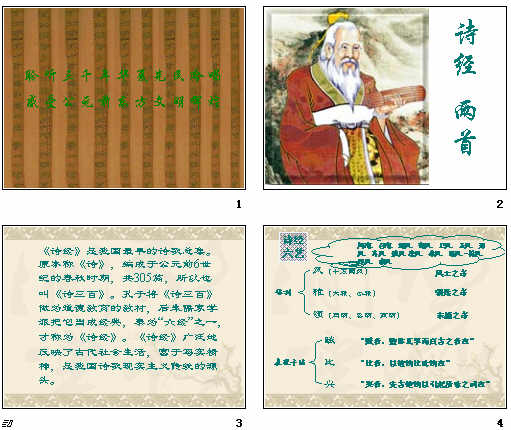 聆听三千年华夏先民吟唱
感受公元前东方文明辉煌
1
诗
经
两
首
2
《诗经》是我国最早的诗歌总集。
原本称《诗》，编成于公元前6世
纪的春秋时期，共305篇，所以也
叫《诗三百》。孔子将《诗三百》
做为道德教育的教材，后来儒家学
派把它当成经典，奉为“六经”之一，
才称为《诗经》。《诗经》广泛地
反映了古代社会生活，富于写实精
神，是我国诗歌现实主义传统的源
头。
3
诗经
六艺
风
风土之音
体制
雅（大雅、小雅）
朝廷之音
颂（周颂、鲁颂、商颂）
宗庙之音
表现手法
赋
比
“比者，以彼物比此物也”
兴
“兴者，先言他物以引起所咏之词也”
4